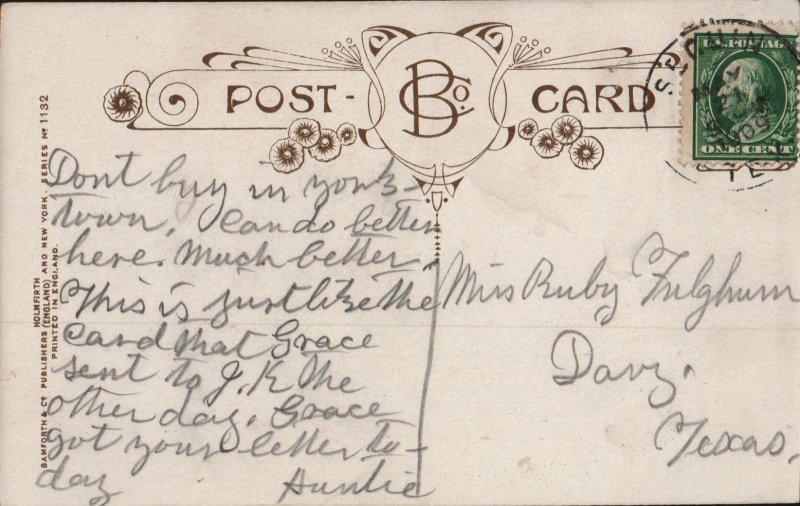 POST- BCo. CARD
U.S. POSTAGE
ONE CENT
1909
TEX
BAMFORTH & Co PUBLISHERS (ENGLAND) AND NEW YORK. SERIES No 1132
HOLMFIRTH
PRINTED IN ENGLAND.
Dont buy in york-
town, Can do better
here. Much better.
This is just like the
card that Grace
sent to J. K the
other day. Grace
got your letter to-
day Auntie
Miss Ruby Fulghum
Davy.
Texas.